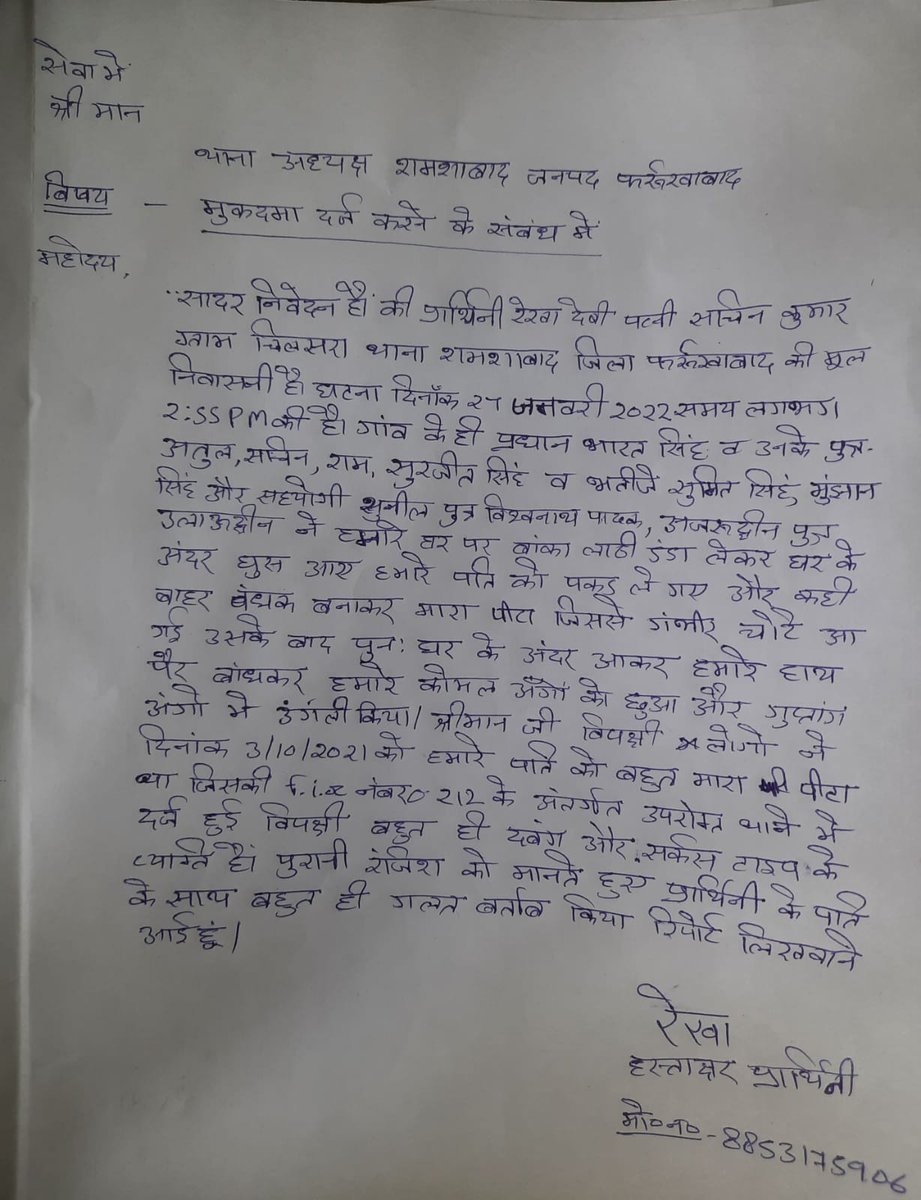 सेवा में
श्री मान
थाना अध्यक्ष शमशाबाद जनपद फर्रूखाबाद
बिषय - मुकदमा दर्ज करने के संबंध में
महोदय,
सादर निवेदन है की प्रार्थिनी रेखा देवी पत्नी सचिन कुमार
ग्राम चिलसरा थाना शमशाबाद जिला फर्रूखाबाद की मूल
निवासनी है। घटना दिनाँक 27 जनवरी 2022 समय लगभग
2:55 PM की है। गांव के ही प्रधान भारत सिंह व उनके पुत्र-
अतुल, सचिन, राम, सुरजीत सिंह व भतीजे सुमित सिंह,
सिंह और सहयोगी सुनील पुत्र विश्वनाथ पाठक, अजरूद्दीन पुत्र
ने हमारे घर पर बांका लाठी डंडा लेकर घर के
अंदर घुस आए हमारे पति को पकड़ ले गए और कही
बाहर बंधक बनाकर मारा पीटा जिससे गंभीर चोटे आ
गई उसके बाद पुनः घर के अंदर आकर हमारे हाथ
पैर बांधकर हमारे कोमल अँगों को छुआ और गुप्तांग
अंगो मे उंगली किया। श्रीमान जी विपक्षी लोगो ने
दिनांक 3/10/2021 को हमारे पति को बहुत मारा पीटा
था जिसकी f.i.r नंबर० 212 के अंतर्गत उपरोक्त थाने मे
दर्ज हुई विपक्षी बहुत ही दबंग और सर्कस टाइप के
व्यक्ति है। पुरानी रंजिश को मानते हुए प्रार्थिनी के पति
के साथ बहुत ही गलत बर्ताब किया रिपोर्ट लिखवाने
आई हूं।
रेखा
हस्ताक्षर प्रार्थिनी
मो०न० - 8853175906